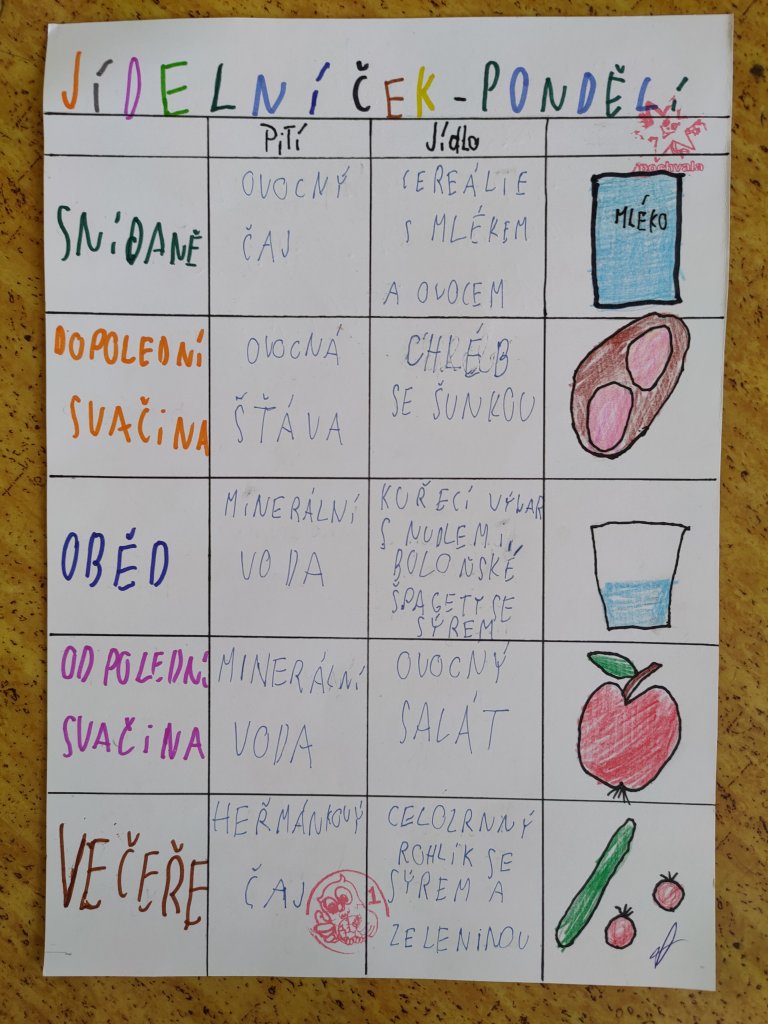 JÍDELNÍČEK - PONDĚLÍ
PITÍ
Jídlo
pochvala
SNÍDANĚ
OVOCNÝ
ČAJ
CEREÁLIE
S MLÉKEM
A OVOCEM
MLÉKO
DOPOLEDNÍ
SVAČINA
OVOCNÁ
ŠŤÁVA
CHLÉB
SE ŠUNKOU
OBĚD
MINERÁLNÍ
VODA
KUŘECÍ VÝVAR
S NUDLEMI,
BOLOŇSKÉ
ŠPAGETY SE
SÝREM
ODPOLEDNÍ
SVAČINA
MINERÁLNÍ
VODA
OVOCNÝ
SALÁT
VEČEŘE
HEŘMÁNKOVÝ
ČAJ
1
CELOZRNNÝ
ROHLÍK SE
SÝREM A
ZELENINOU